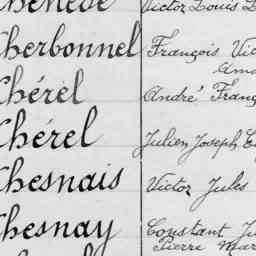 Victor Louis
Cherbonnel François
Chérel André
Chérel Julien Joseph
Chesnais Victor Jules
Chesnay Constant
Pierre